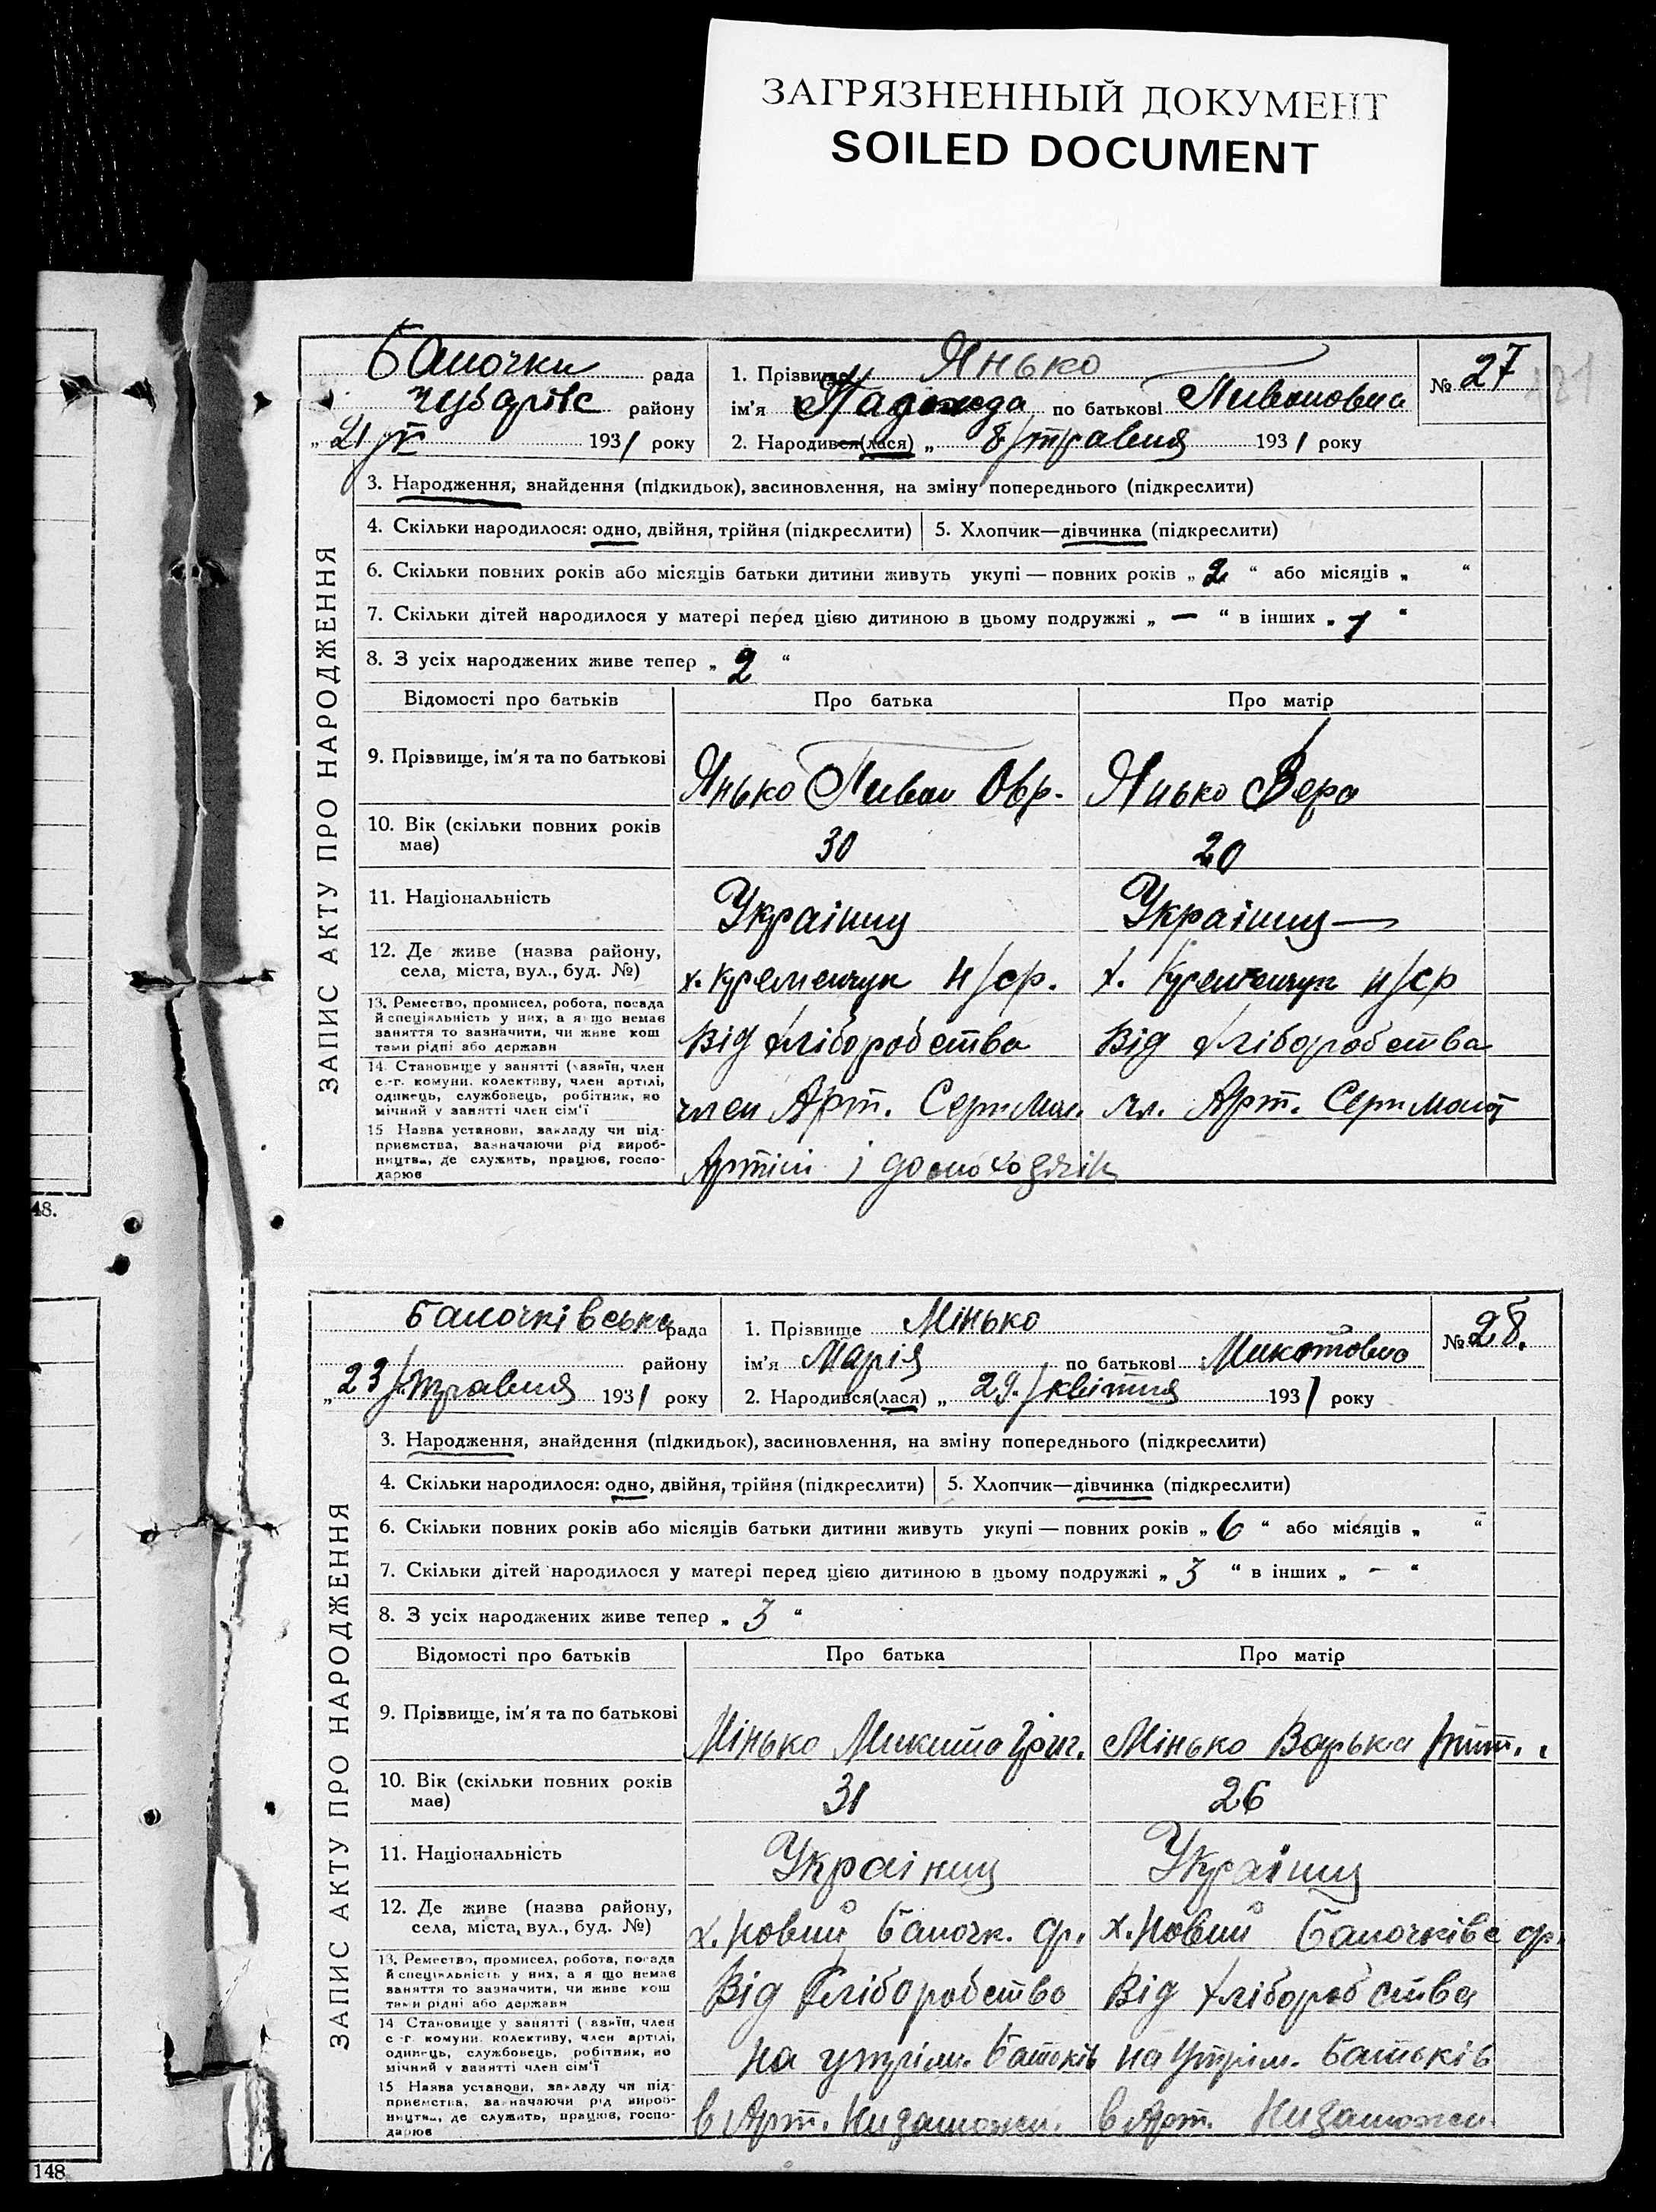 ЗАГРЯЗНЕННЫЙ ДОКУМЕНТ
SOILED DOCUMENT
Балочки рада
1. Прізвище Янько
№ 27
района чубарівс району
ім'я Надежда по батькові
2. Народився(лася) „ 8/травня 1931 року
„21/V 1931 року
3. Народження, знайдення (підкидьок), засиновлення, на зміну попереднього (підкреслити)
4. Скільки народилося: одно, двійня, трійня (підкреслити) 5. Хлопчик—дівчинка (підкреслити)
6. Скільки повних років або місяців батьки дитини живуть укупі — повних років „ 2 “ або місяців „ “
7. Скільки дітей народилося у матері перед цією дитиною в цьому подружжі „ — “ в інших „ 1 “
8. З усіх народжених живе тепер „ 2 “
Відомості про батьків Про батька Про матір
9. Прізвище, ім'я та по батькові Янько Овр. Янько Вера
10. Вік (скільки повних років має) 30 20
11. Національність Українц Українц
12. Де живе (назва району, села, міста, вул., буд. №) х. Кременчук н/ср. х. Кременчук н/ср
13. Ремество, промисел, робота, посада й спеціяльність у них, а якщо немає заняття то зазначити, чи живе коштами рідні або держави Від хліборобства Від хліборобства
14. Становище у занятті (хазяїн, член с.-г. комуни, колективу, член артілі, одинець, службовець, робітник, помічний у занятті член сім'ї член Арт. Серп Мол. чл. Арт. Серп Молот
15 Назва установи, закладу чи підприємства, зазначаючи рід виробництва, де служить, працює, господарює Артілі і
ЗАПИС АКТУ ПРО НАРОДЖЕННЯ
48.
Балочківська рада
1. Прізвище Мінько
№ 28.
району
ім'я Марія по батькові Микитовна
„ 23/травня 1931 року
2. Народився(лася) „ 29/квітня 1931 року
3. Народження, знайдення (підкидьок), засиновлення, на зміну попереднього (підкреслити)
4. Скільки народилося: одно, двійня, трійня (підкреслити) 5. Хлопчик—дівчинка (підкреслити)
6. Скільки повних років або місяців батьки дитини живуть укупі — повних років „ 6 “ або місяців „ “
7. Скільки дітей народилося у матері перед цією дитиною в цьому подружжі „ 3 “ в інших „ — “
8. З усіх народжених живе тепер „ 3 “
Відомості про батьків Про батька Про матір
9. Прізвище, ім'я та по батькові Мінько Микита Григ. Мінько Варька
10. Вік (скільки повних років має) 31 26
11. Національність Українц Українц
12. Де живе (назва району, села, міста, вул., буд. №) х. Новий Балочк. ср. х. Новий Балочківс ср.
13. Ремество, промисел, робота, посада й спеціяльність у них, а якщо немає заняття то зазначити, чи живе коштами рідні або держави Від хліборобство Від хліборобства
14 Становище у занятті (хазяїн, член с-г. комуни, колективу, член артілі, одинець, службовець, робітник, помічний у занятті член сім'ї на утрим. батьків на утрим. батьків
15 Назва установи, закладу чи підприємства, зазначаючи рід виробництва, де служить, працює, господарює в Арт. Незаможн. в Арт. Незаможн.
ЗАПИС АКТУ ПРО НАРОДЖЕННЯ
148